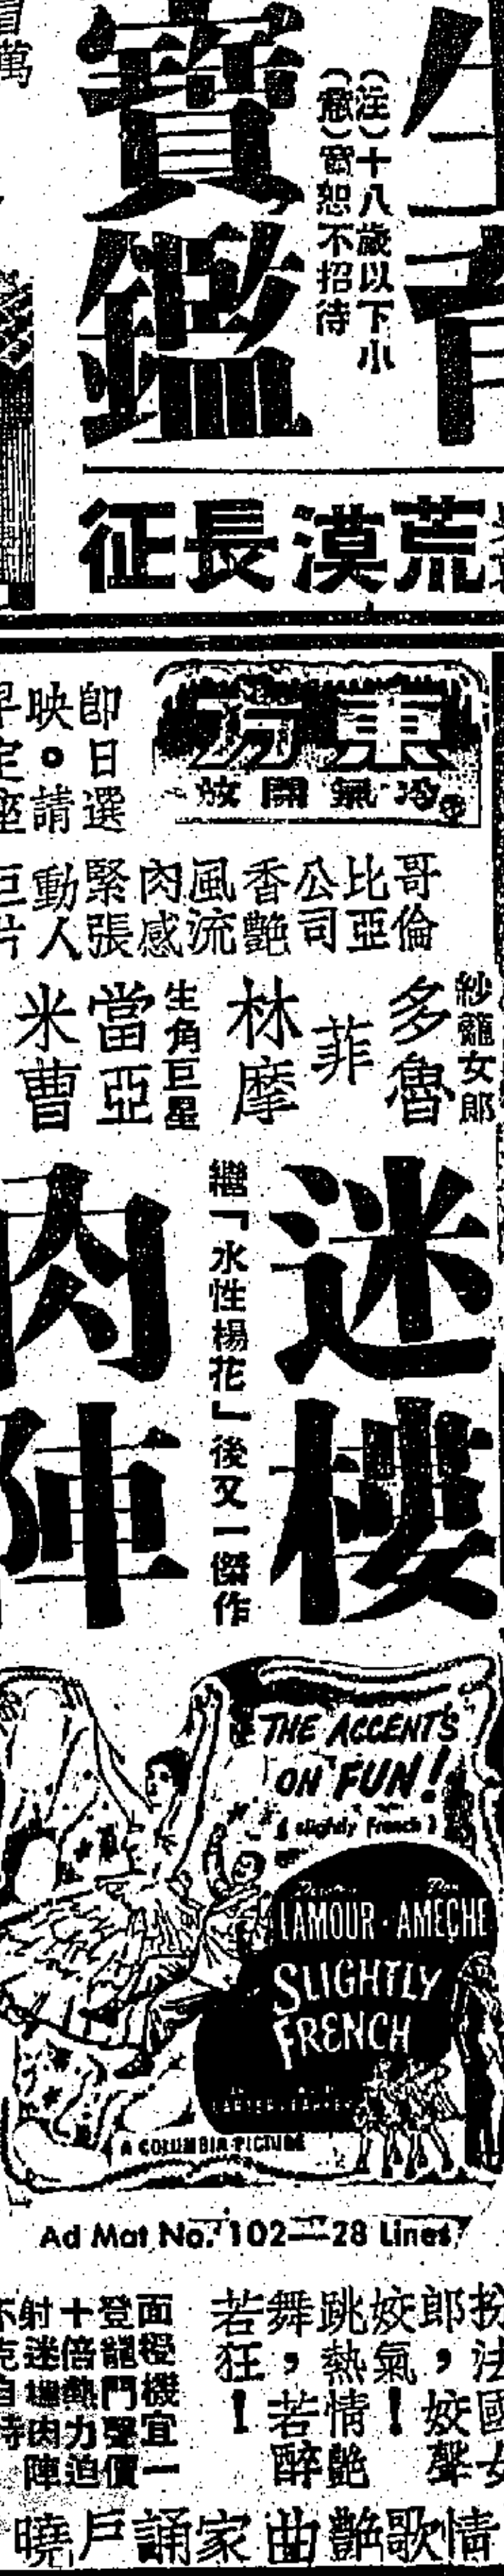 寶鑑
(注)十八歲以下小
(意)童恕不招待
荒漠長征
東方
冷氣開放
即日選
映。請
哥倫
比亞
公司
香艷
風流
肉感
緊張
動人
巨片
紗籠女郎
多魯
菲
林摩
生角巨星
當亞
米曹
迷樓
繼「水性楊花」後又一傑作
肉陣
THE ACCENT'S
ON FUN!
(slightly French)
LAMOUR · AMECHE
SLIGHTLY
FRENCH
A COLUMBIA PICTURE
Ad Mat No. 102—28 Lines
扮法國女
郎,姣聲
姣氣!
跳熱情艷
舞,若醉
若狂!
面授機宜一
登龍門聲價
十倍熱力迫
射迷樓肉陣
情歌艷曲家誦戶曉